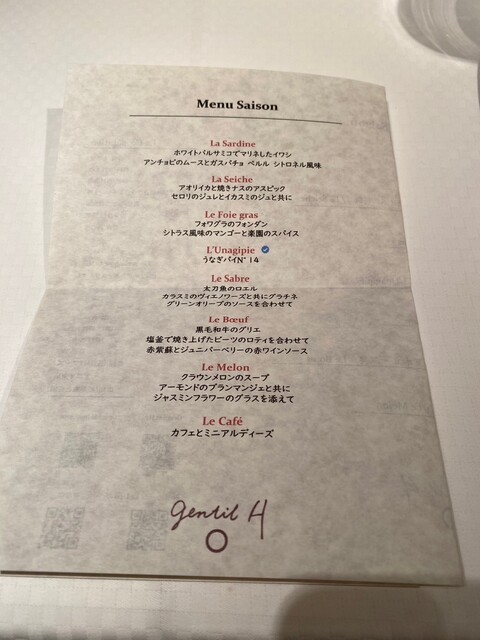 Menu Saison
La Sardine
ホワイトバルサミコでマリネしたイワシ
アンチョビのムースとガスパチョ ペルル シトロネル風味
La Seiche
アオリイカと焼きナスのアスピック
セロリのジュレとイカスミのジュと共に
Le Foie gras
フォワグラのフォンダン
シトラス風味のマンゴーと楽園のスパイス
L'Unagipie
うなぎパイN°14
Le Sabre
太刀魚のロエル
カラスミのヴィエノワーズと共にグラチネ
グリーンオリーブのソースを合わせて
Le Bœuf
黒毛和牛のグリエ
塩釜で焼き上げたビーツのロティを合わせて
赤紫蘇とジュニパーベリーの赤ワインソース
Le Melon
クラウンメロンのスープ
アーモンドのブランマンジェと共に
ジャスミンフラワーのグラスを添えて
Le Café
カフェとミニアルディーズ
gentil H